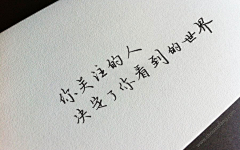 你关注的人
决定了你看到的世界